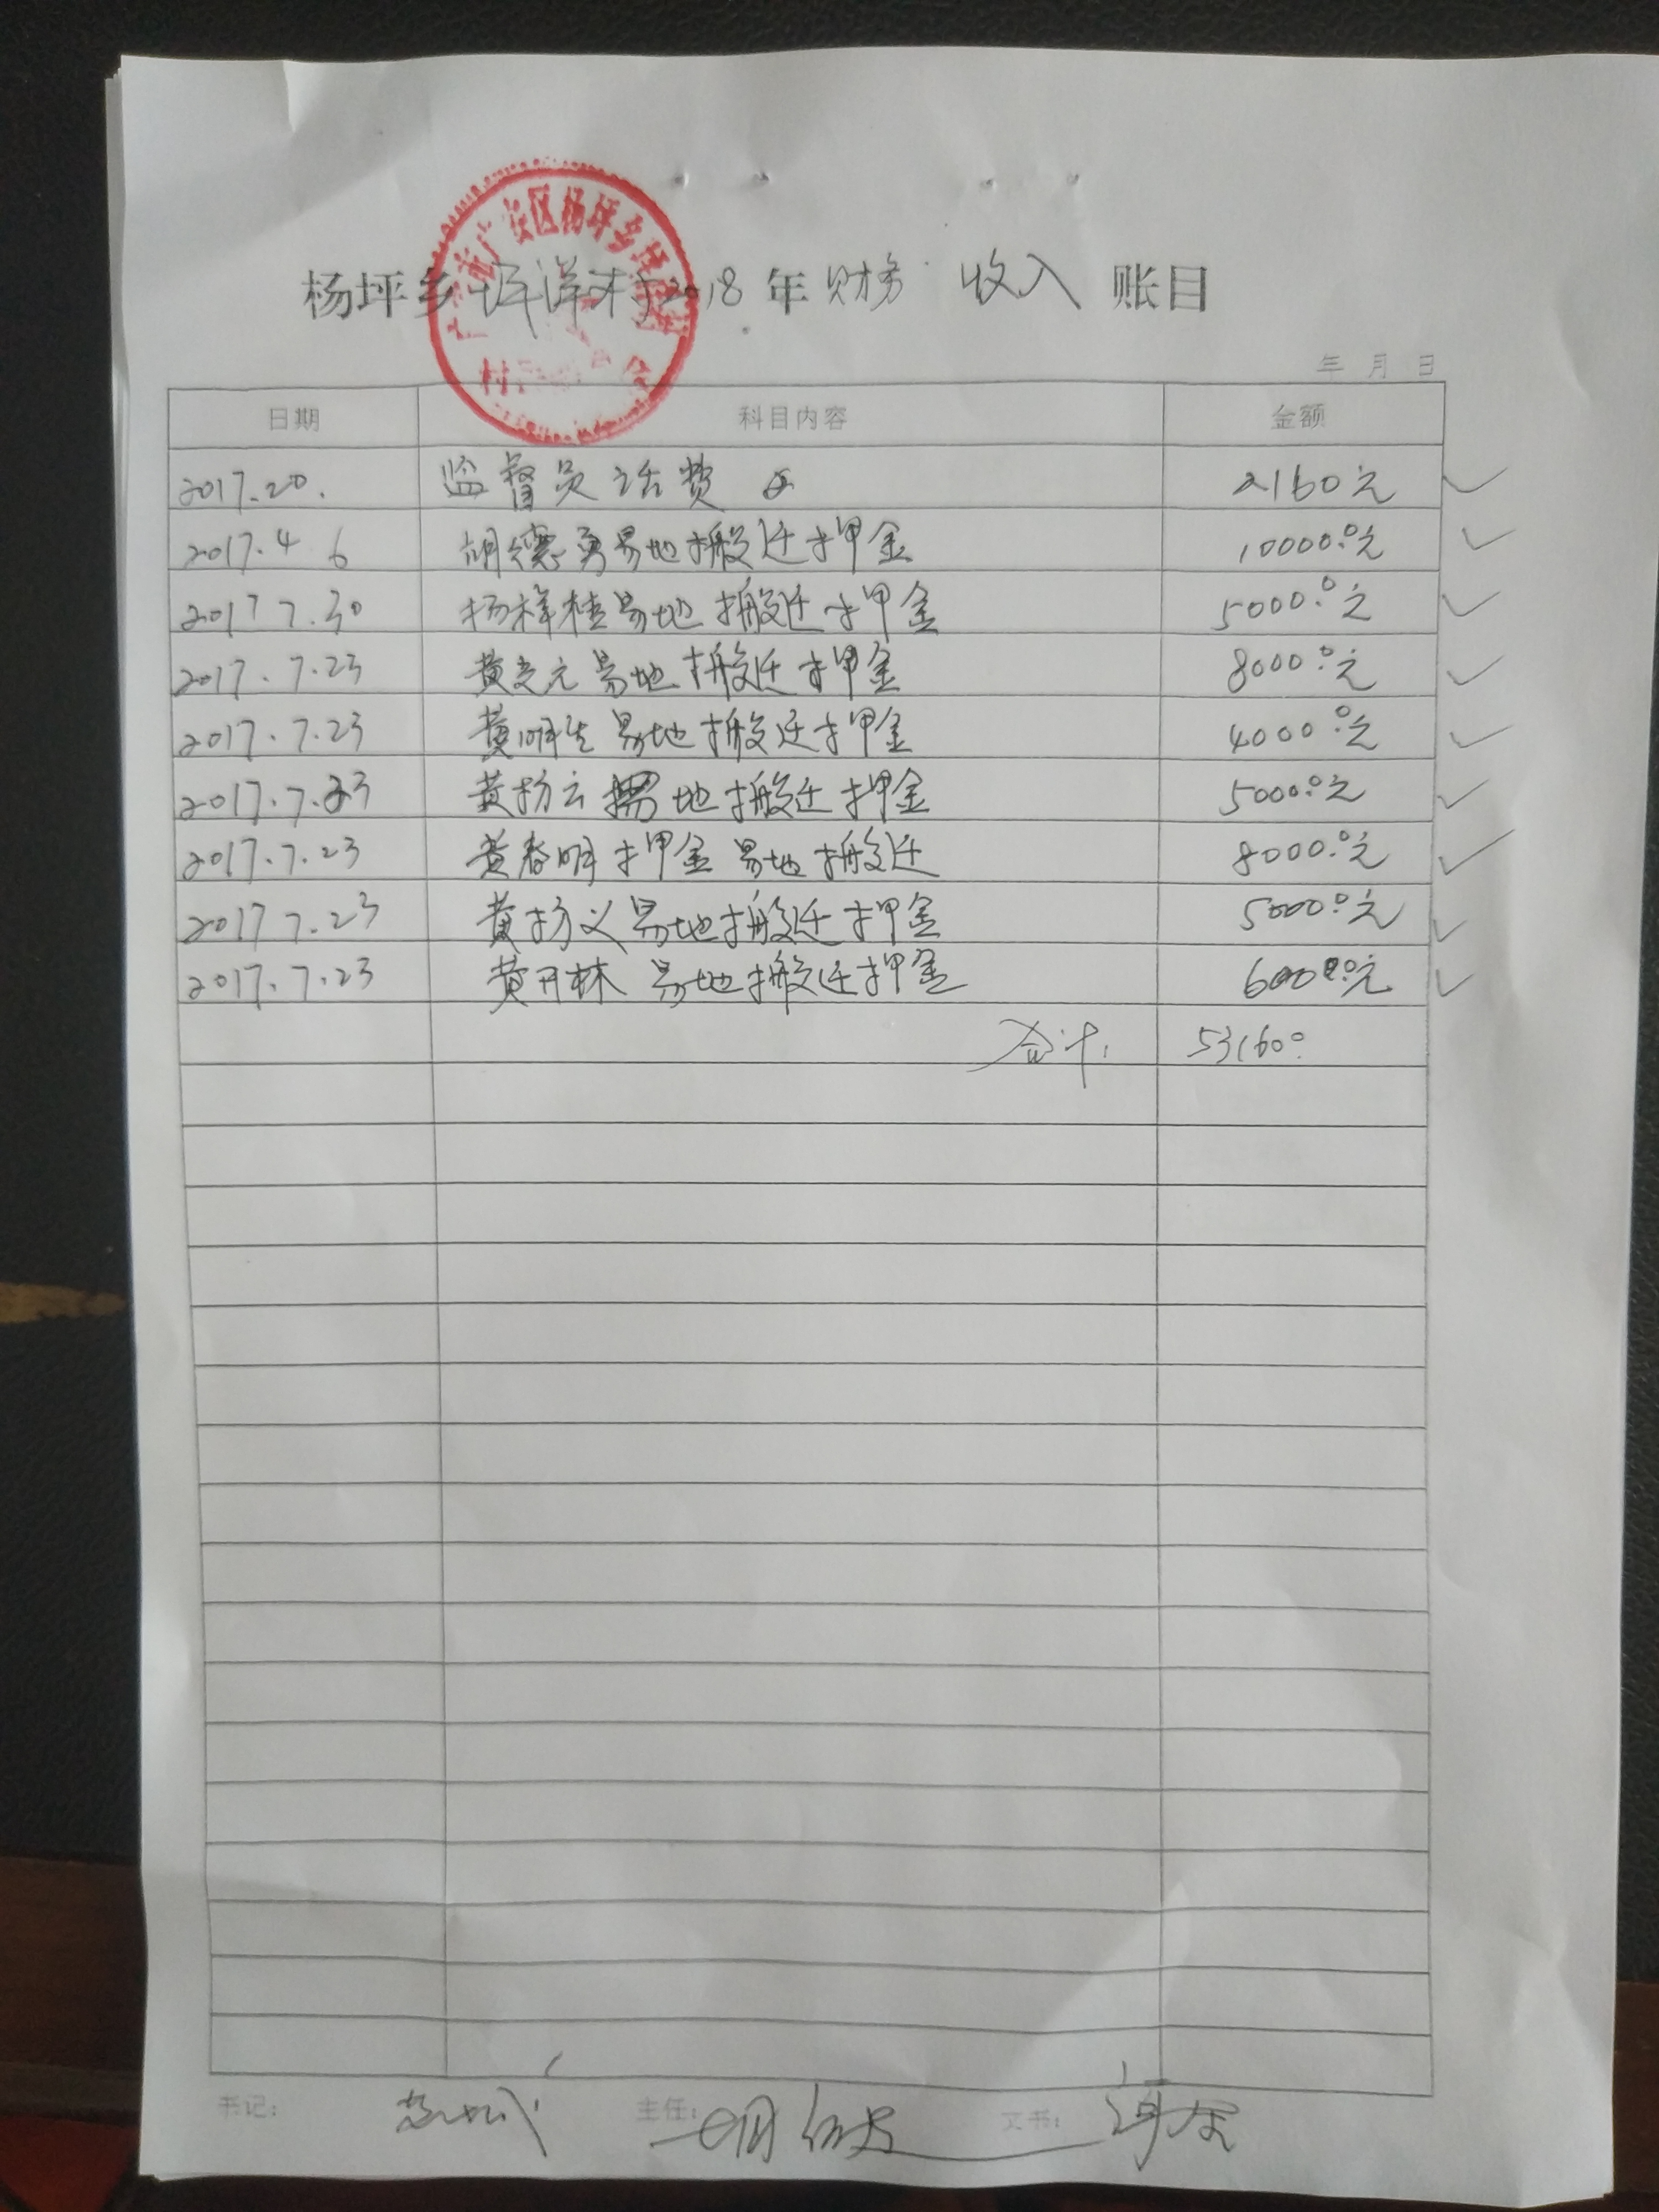 杨坪乡 坪洋村 2018 年 财务 收入 账目
年 月 日
日期 科目内容 金额
2017.20. 监督员话费 2160元
2017.4 6 胡德勇易地搬迁押金 10000.0元
2017 7.30 杨祥桂易地搬迁押金 5000.0元
2017.7.23 黄克元易地搬迁押金 8000.0元
2017.7.23 黄明生易地搬迁押金 4000.0元
2017.7.23 黄扬云易地搬迁押金 5000.0元
2017.7.23 黄春明押金易地搬迁 8000.0元
2017 7.23 黄扬义易地搬迁押金 5000.0元
2017.7.23 黄开林易地搬迁押金 6000.0元
合计 53160.0
书记: 主任: 文书: